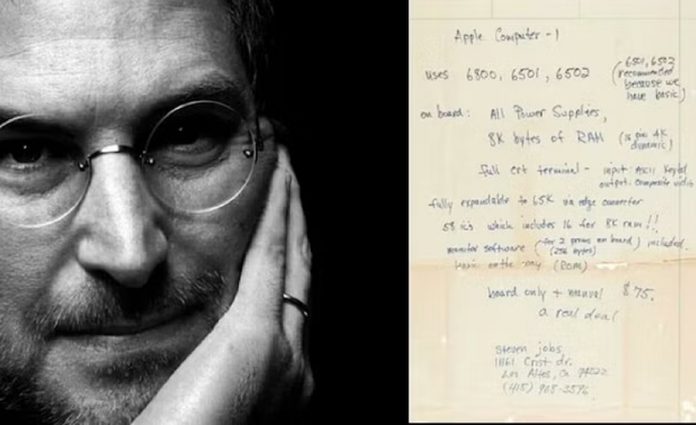 Apple Computer-1
uses 6800, 6501, 6502
(6501, 6502
recommended
because we
have basic)
on board: All Power Supplies,
8K bytes of RAM (16 pin 4K
dynamic)
full crt terminal - input: ASCII Keybd
output: composite video
fully expandable to 65K via edge connector
58 ic's which includes 16 for 8K ram!!
monitor software (for 2 proms on board) included
(256 bytes)
basic on the way (ROM)
board only + manual $75.
a real deal
Steven jobs
11161 Crist dr.
Los Altos, Ca 94022
(415)